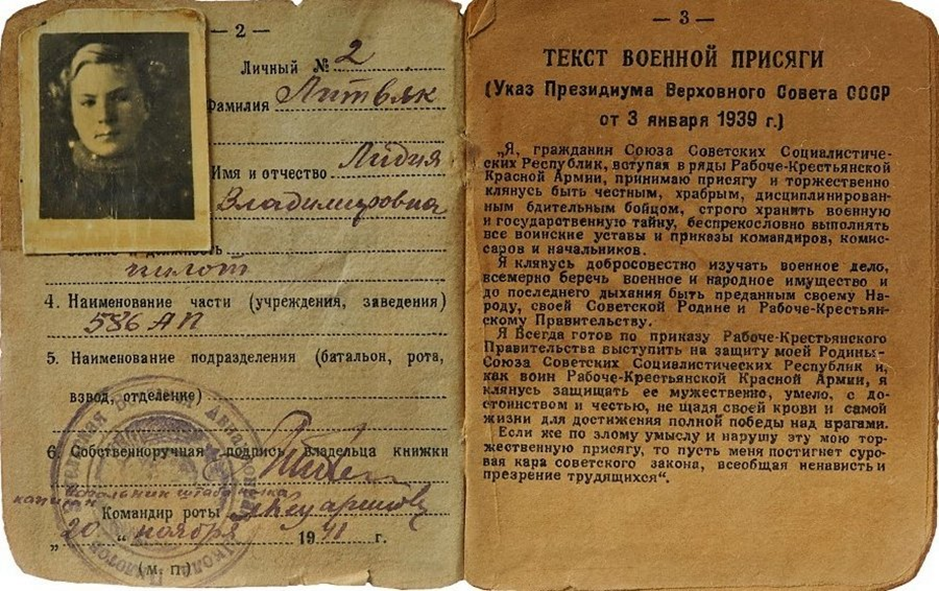 — 2 —
Личный № 2
Фамилия Литвяк
Имя и отчество Лидия
Владимировна
пилот
4. Наименование части (учреждения, заведения)
586 АП
5. Наименование подразделения (батальон, рота,
взвод, отделение)
6. Собственноручная подпись владельца книжки
капитан начальник штаба полка
Командир роты
„20 “ ноября 1941 г.
(м. п.)
— 3 —
ТЕКСТ ВОЕННОЙ ПРИСЯГИ
(Указ Президиума Верховного Совета СССР
от 3 января 1939 г.)
„Я, гражданин Союза Советских Социалистиче-
ских Республик, вступая в ряды Рабоче-Крестьянской
Красной Армии, принимаю присягу и торжественно
клянусь быть честным, храбрым, дисциплинирован-
ным бдительным бойцом, строго хранить военную
и государственную тайну, беспрекословно выполнять
все воинские уставы и приказы командиров, комис-
саров и начальников.
Я клянусь добросовестно изучать военное дело,
всемерно беречь военное и народное имущество и
до последнего дыхания быть преданным своему На-
роду, своей Советской Родине и Рабоче-Крестьян-
скому Правительству.
Я Всегда готов по приказу Рабоче-Крестьянского
Правительства выступить на защиту моей Родины-
Союза Советских Социалистических Республик и,
как воин Рабоче-Крестьянской Красной Армии, я
клянусь защищать ее мужественно, умело, с до-
стоинством и честью, не щадя своей крови и самой
жизни для достижения полной победы над врагами.
Если же по злому умыслу я нарушу эту мою тор-
жественную присягу, то пусть меня постигнет суро-
вая кара советского закона, всеобщая ненависть и
презрение трудящихся“.